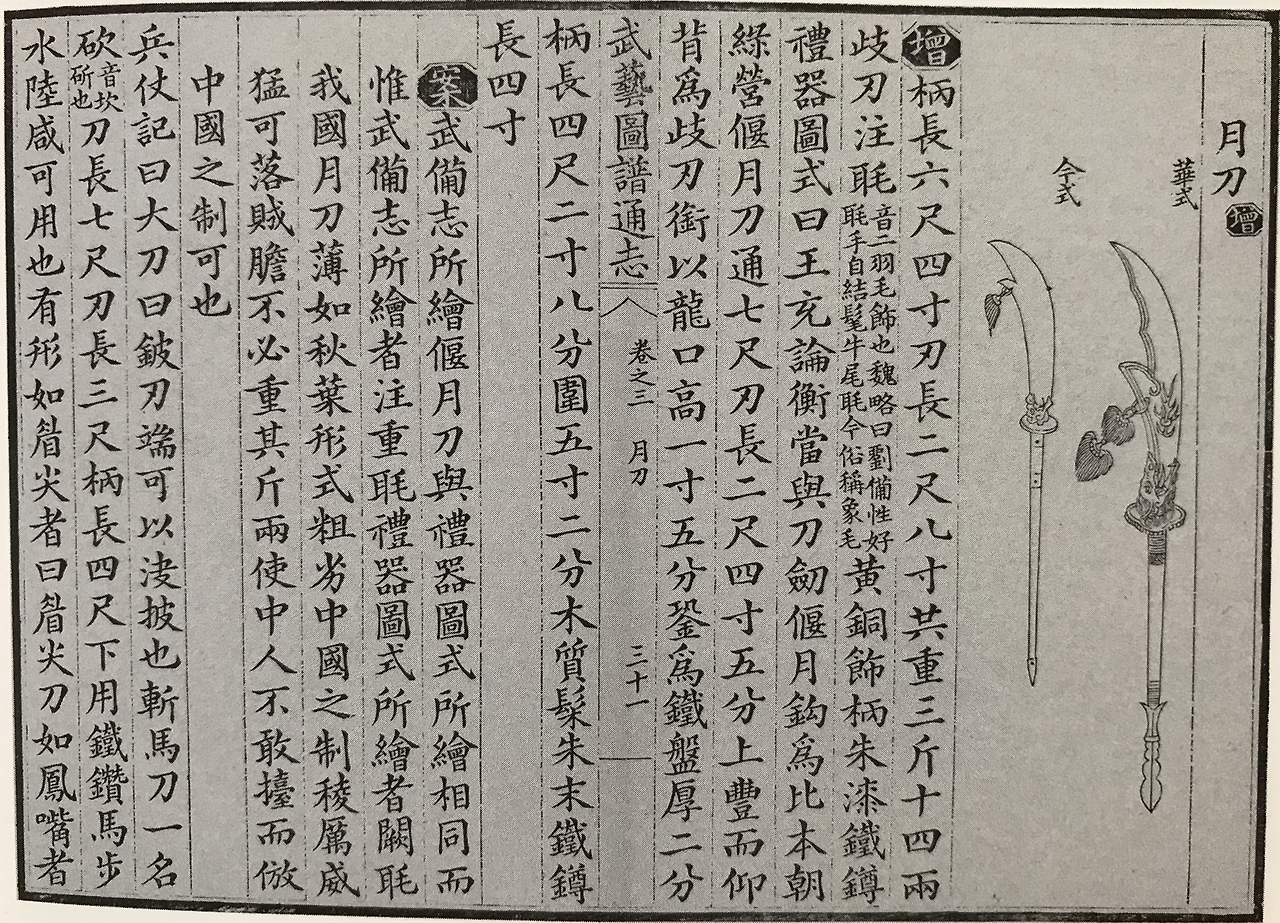 月刀 增
華式
今式
增 柄長六尺四寸刃長二尺八寸共重三斤十四兩
歧刃注毦音二羽毛飾也魏略曰劉備性好毦手自結髦牛尾毦今俗稱象毛黃銅飾柄朱漆鐵鐏
禮器圖式曰王充論衡當與刀劒偃月鈎爲比本朝
綠營偃月刀通七尺刀長二尺四寸五分上豐而仰
背爲歧刃銜以龍口高一寸五分銎爲鐵盤厚二分
武藝圖譜通志 卷之三 月刀 三十一
柄長四尺二寸八分圍五寸二分木質髹朱末鐵鐏
長四寸
案 武備志所繪偃月刀與禮器圖式所繪相同而
惟武備志所繪者注重毦禮器圖式所繪者闕毦
我國月刀薄如秋葉形式粗劣中國之制稜厲威
猛可落賊膽不必重其斤兩使中人不敢擡而倣
中國之制可也
兵仗記曰大刀曰鈹刀端可以决披也斬馬刀一名
砍音坎斫也刀長七尺刃長三尺柄長四尺下用鐵鑽馬步
水陸咸可用也有形如眉尖者曰眉尖刀如鳳嘴者